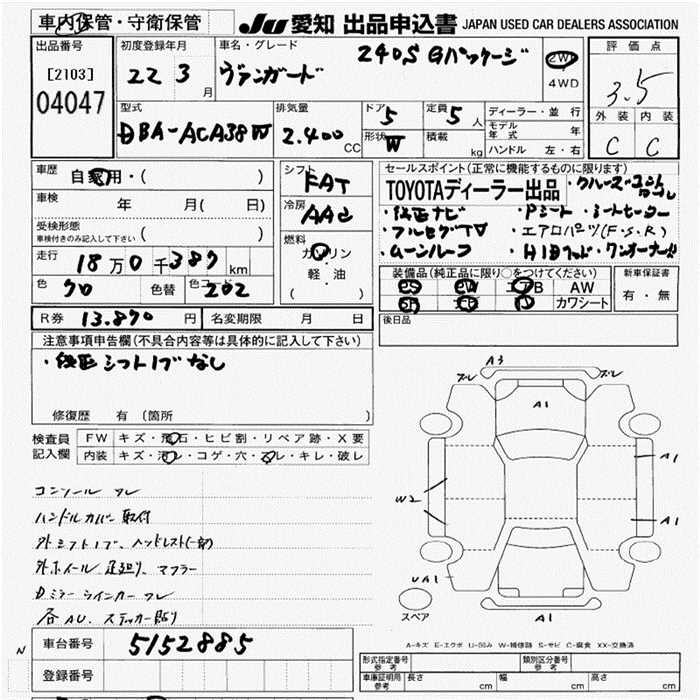 車内保管・守衛保管
JU 愛知 出品申込書 JAPAN USED CAR DEALERS ASSOCIATION
出品番号
[2103]
04047
初度登録年月
22 3月
車名・グレード
ヴァンガード 240S Gパッケージ
2WD
4WD
評価点
3.5
外装 内装
C C
型式
DBA-ACA38W
排気量
2.400 CC
ドア 5
形状 W
定員 5 人
積載 kg
ディーラー・並行
モデル年式 年
ハンドル 左・右
車歴 自家用・( )
車検 年 月( 日)
受検形態
車検付きのみ記入して下さい ( )
走行 18万0千387km
色 クロ 色替 色コード 202
シフト FAT
冷房 AAC
燃料
ガソリン
軽・油
( )
セールスポイント(正常に機能するものに限ります)
TOYOTAディーラー出品
・純正ナビ ・Pシート ・シートヒーター
・フルセグTV ・エアロパーツ(F・S・R)
・ムーンルーフ ・HID ・ワンオーナー
装備品(純正品に限り○をつけてください)
PS PW エアB AW
SR カワシート
新車保証書
有・無
後日品
R券 13.870円 名変期限 月 日
注意事項申告欄(不具合内容等は具体的に記入して下さい)
・純正シフトノブなし
修復歴 有(箇所 )
検査員記入欄
FW キズ・飛石・ヒビ割・リペア跡・X要
内装 キズ・汚レ・コゲ・穴・スレ・キレ・破レ
コンソール スレ
ハンドルカバー取付
外シフトノブ、ヘッドレスト(一部)
外ホイール 足廻り、マフラー
Dミラー ウインカー スレ
各AU、ステッカー貼り
A3
ズレ ズレ
A1
A1
W2
A1
UA1
A1
スペア
A-キズ E-エクボ U-凹み W-補修跡 S-サビ C-腐食 XX-交換済
N
車台番号 5152885
登録番号
形式指定番号 参考
類別区分番号 参考
車庫証明 参考 長さ cm 幅 cm 高さ cm